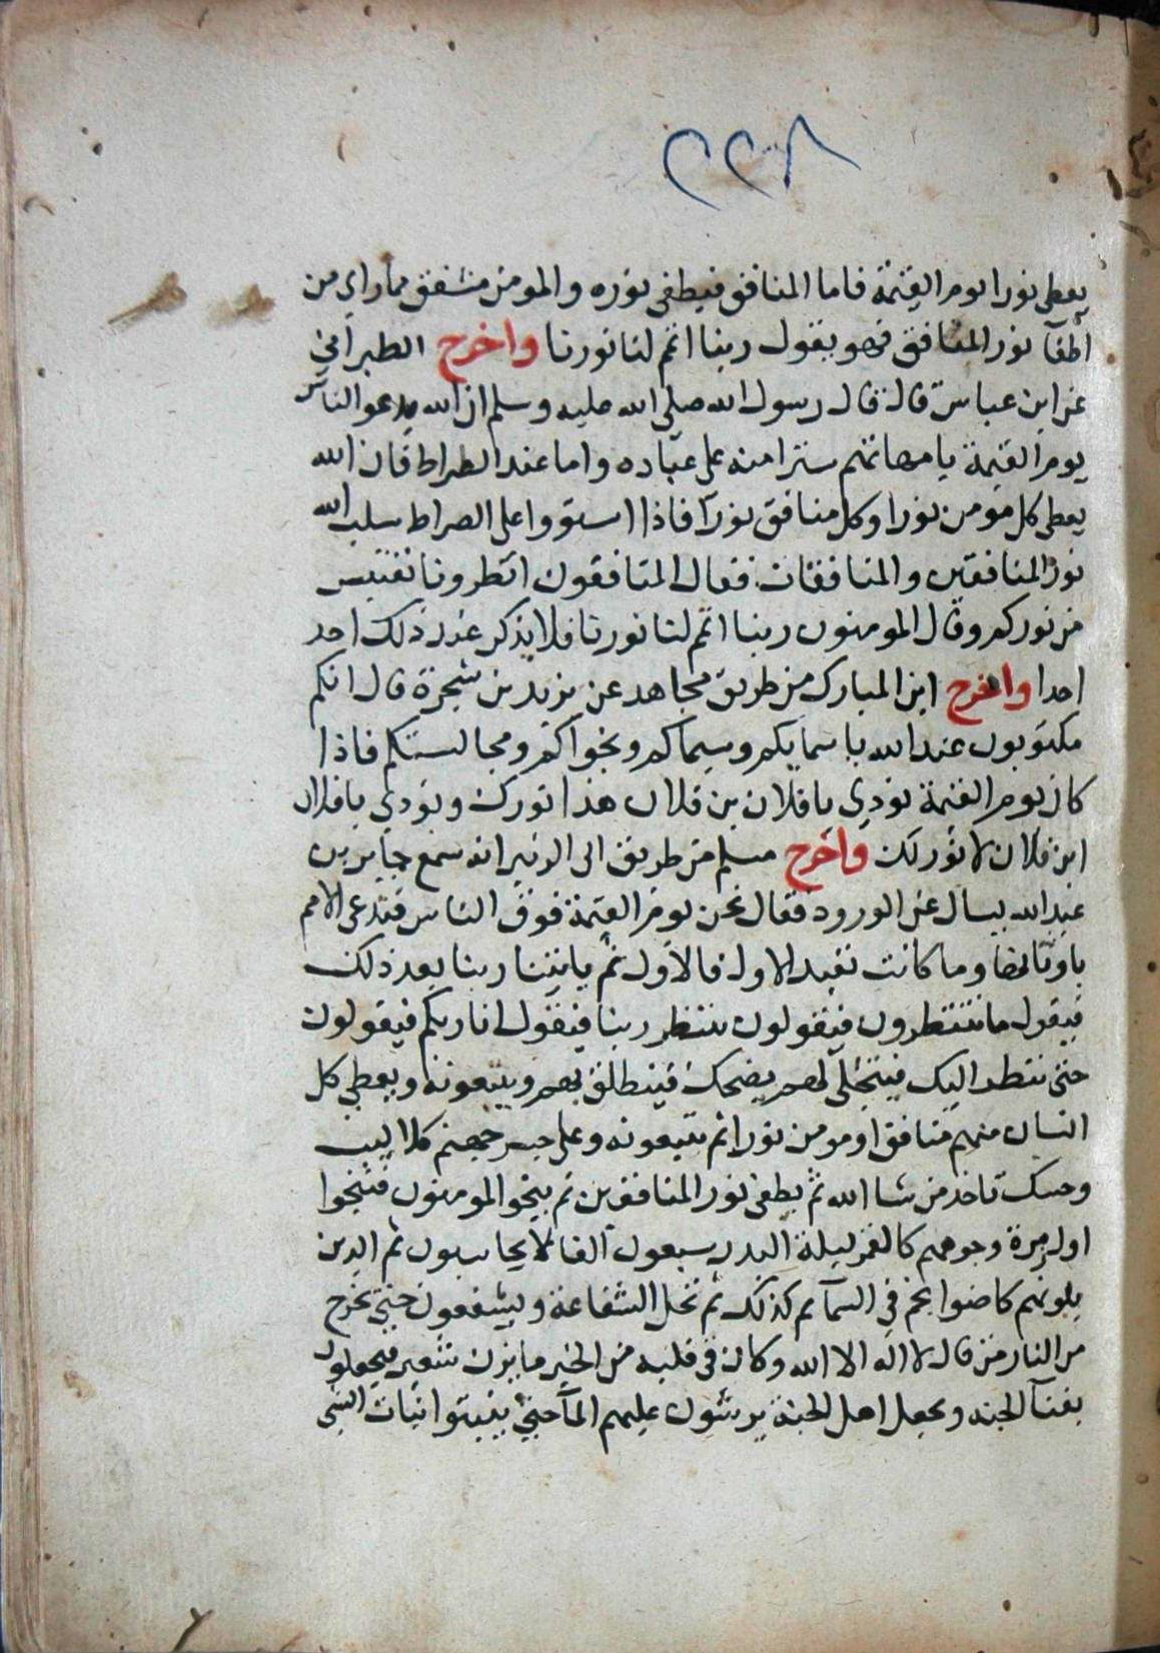 ٢٢٨
يعطى نورا يوم القيمة فاما المنافق فيطفى نوره والمومن مشفق مما راي من
أطفآ نور المنافق فهو يقول ربنا اتمم لنا نورنا واخرج الطبراني
عن ابن عباس قال قال رسول الله صلى الله عليه وسلم ان الله يدعو الناس
يوم القيمة بامهاتهم سترا منه على عباده واما عند الصراط فان الله
يعطى كل مومن نورا وكل منافق نورا فاذا استووا على الصراط سلب الله
نور المنافقين والمنافقات فقال المنافقون انظرونا نقتبس
من نوركم وقال المومنون ربنا اتمم لنا نورنا فلا يذكر عند ذلك احد
احدا واخرج ابن المبارك من طريق مجاهد عن يزيد بن شجرة قال انكم
مكتوبون عند الله باسمايكم وسيماكم ونجواكم ومجالستكم فاذا
كان يوم القيمة نودي يا فلان بن فلان هذا نورك ونودي يا فلان
ابن فلان لا نور لك واخرج مسلم من طريق ابي الزبير انه سمع جابر بن
عبد الله يسال عن الورود فقال نحن يوم القيمة فوق الناس فتدعى الامم
باوثانها وما كانت تعبد الاول فالاول ثم ياتينا ربنا بعد ذلك
فيقول ما تنتظرون فيقولون ننتظر ربنا فيقول انا ربكم فيقولون
حتى ننظر اليك فيتجلى لهم يضحك فينطلق بهم ويتبعونه ويعطي كل
انسان منهم منافق او مومن نورا ثم يتبعونه وعلى جسر جهنم كلاليب
وحسك تاخذ من شا الله ثم يطفى نور المنافقين ثم ينجوا المومنون فتنجوا
اول زمرة وجوههم كالقمر ليلة البدر سبعون الفا لا يحاسبون ثم الذين
يلونهم كاضوا نجم في السمآ ثم كذلك ثم تحل الشفاعة ويشفعون حتى يخرج
من النار من قال لا اله الا الله وكان في قلبه من الخير ما يزن شعيرة فيجعلون
بفنآ الجنه ويجعل اهل الجنة يرشون عليهم المآ حتى ينبتوا نبات الشي